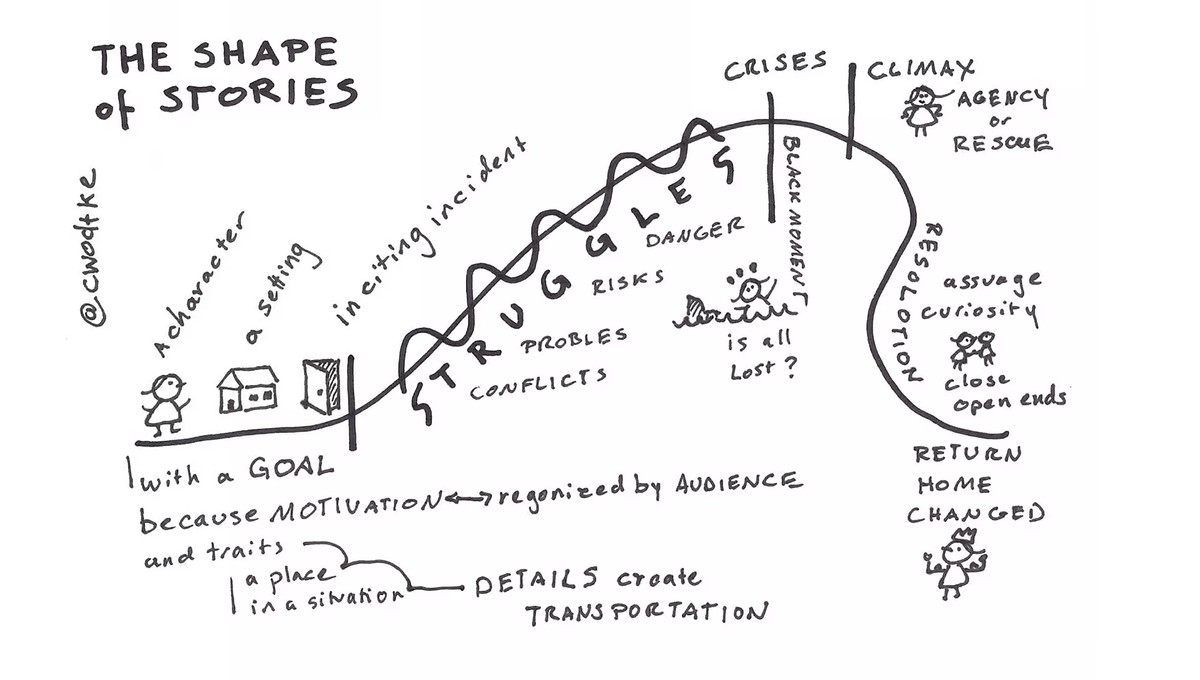 THE SHAPE
of STORIES
@cwodtke
A character
a setting
inciting incident
STRUGGLES
CONFLICTS
PROBLES
RISKS
DANGER
CRISES
BLACK MOMENT
is all
Lost?
CLIMAX
AGENCY
or
RESCUE
RESOLUTION
assuage
curiosity
close
open ends
RETURN
HOME
CHANGED
with a GOAL
because MOTIVATION ↔ regonized by AUDIENCE
and traits
a place
in a situation
DETAILS create
TRANSPORTATION